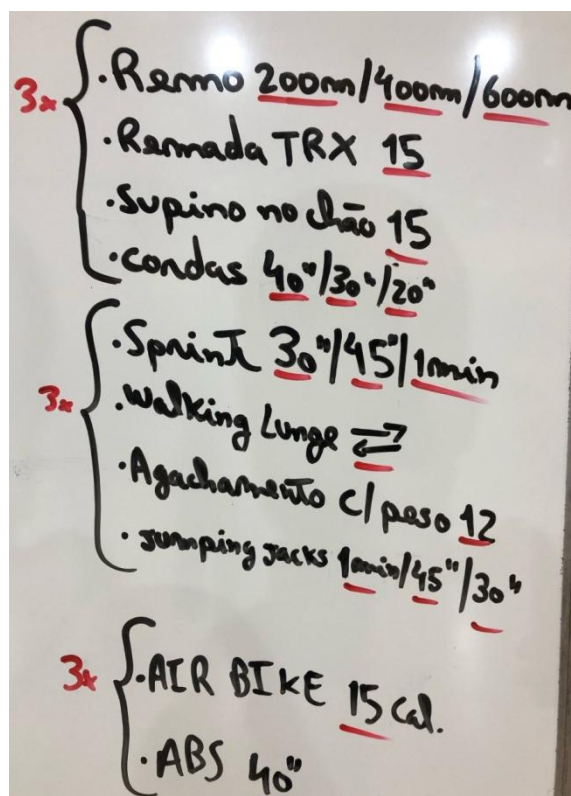 3x
· Remo 200m/400m/600m
· Remada TRX 15
· Supino no chão 15
· cordas 40"/30"/20"
3x
· Sprint 30"/45"/1min
· Walking Lunge ⇄
· Agachamento c/ peso 12
· Jumping Jacks 1min/45"/30"
3x
· AIR BIKE 15 Cal.
· ABS 40"